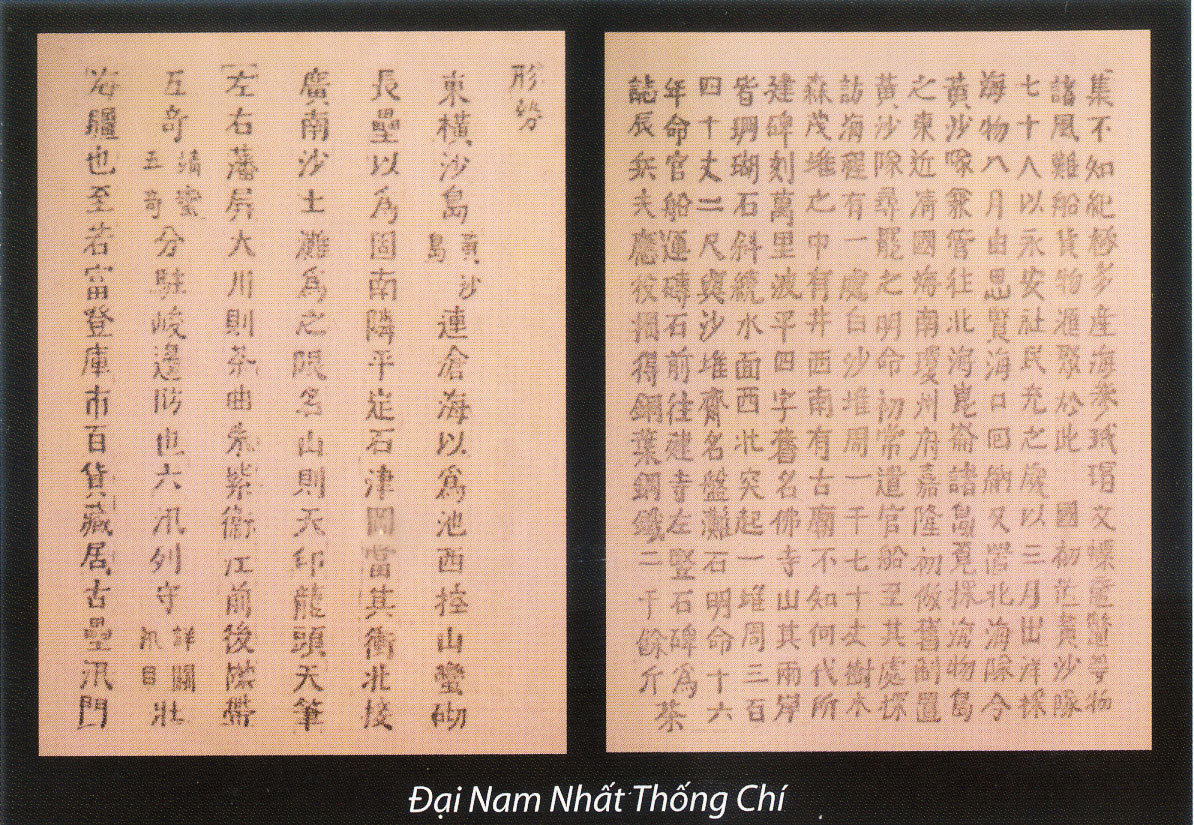 集不知紀極多產海參玳瑁文螺黿鱉等物
諸風難船貨物滙聚於此 國初置黃沙隊
七十人以永安社民充之歲以三月出洋採
海物八月由思賢海口回納又置北海隊令
黃沙隊兼管往北海崑崙諸島覓探海物島
之東近清國海南瓊州府嘉隆初倣舊制置
黃沙隊尋罷之明命初常遣官船至其處探
訪海程有一處白沙堆周一千七十丈樹木
森茂堆之中有井西南有古廟不知何代所
建碑刻萬里波平四字舊名佛寺山其兩岸
皆珊瑚石斜繞水面西北突起一堆周三百
四十丈二尺與沙堆齊名盤灘石明命十六
年命官船運磚石前往建寺左豎石碑爲茶
誌辰兵夫應役掘得銅葉銅鐵二千餘斤
形勢
東橫沙島黃沙島連滄海以爲池西控山蠻砌
長壘以爲固南隣平定石津岡當其衝北接
廣南沙土灘爲之限名山則天印龍頭天筆
左右藩屏大川則茶曲朱紫衛江前後襟帶
互奇靖蠻五奇分駐峻邊防也六汛列守詳關汛目壯
海疆也至若富登庫市百貨藏居古壘汛門
Đại Nam Nhất Thống Chí